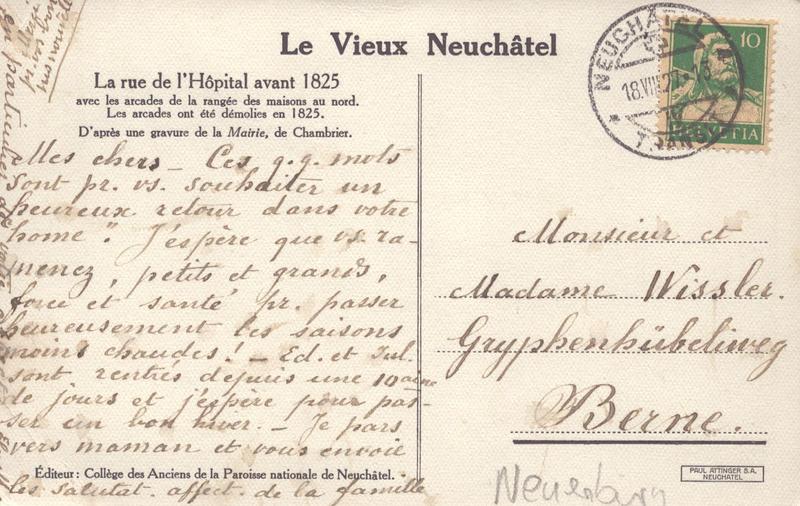 Le Vieux Neuchâtel
La rue de l'Hôpital avant 1825
avec les arcades de la rangée des maisons au nord.
Les arcades ont été démolies en 1825.
D'après une gravure de la Mairie, de Chambrier.
Mes chers – Ces q.q. mots
sont pr. vs. souhaiter un
heureux retour dans votre
home". J'espère que vs. ra-
menez, petits et grands,
force et santé pr. passer
heureusement les saisons
moins chaudes! – Ed. et Jul.
sont rentrés depuis une 10aine
de jours et j'espère pour pas-
ser un bon hiver. – Je pars
vers maman et vous envoie
Éditeur : Collège des Anciens de la Paroisse nationale de Neuchâtel.
les salutat. affect. de la famille
en particulier de
NEUCHÂTEL
18.VIII.27
TRANSIT
10
HELVETIA
Monsieur et
Madame Wissler.
Gryphenhübeliweg
Berne.
PAUL ATTINGER S.A.
NEUCHATEL
Neuenburg